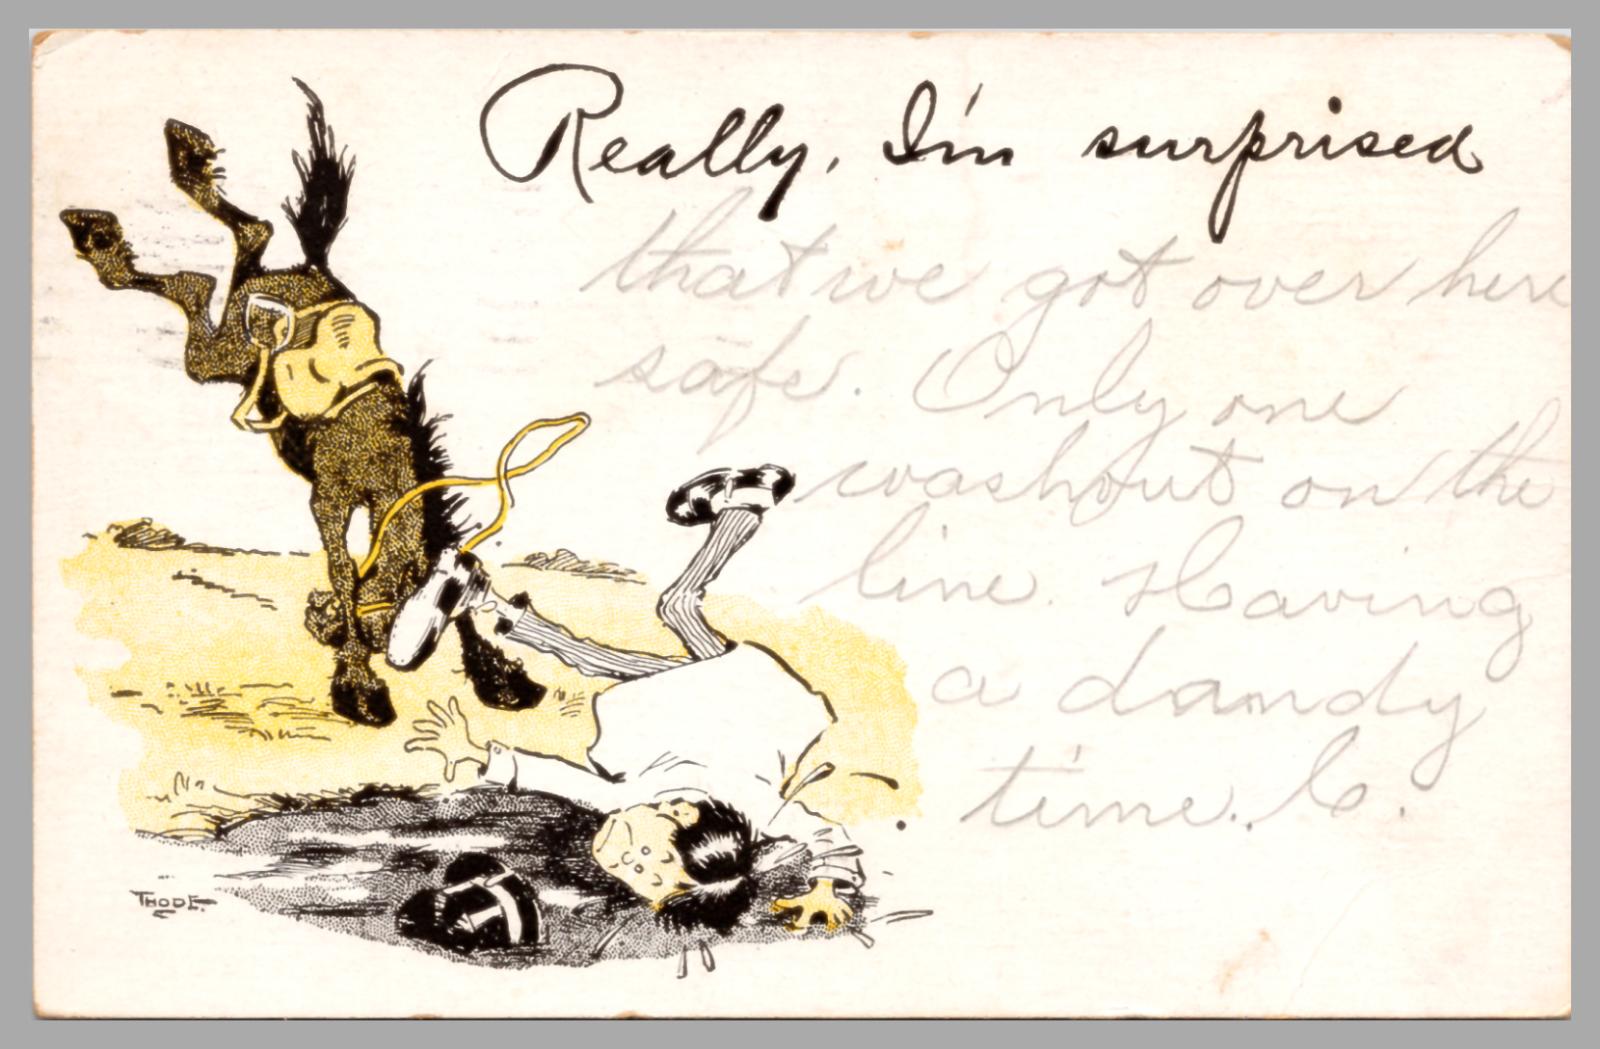 Really, I'm surprised
that we got over here
safe. Only one
washout on the
line. Having
a dandy
time. C.
THODE.